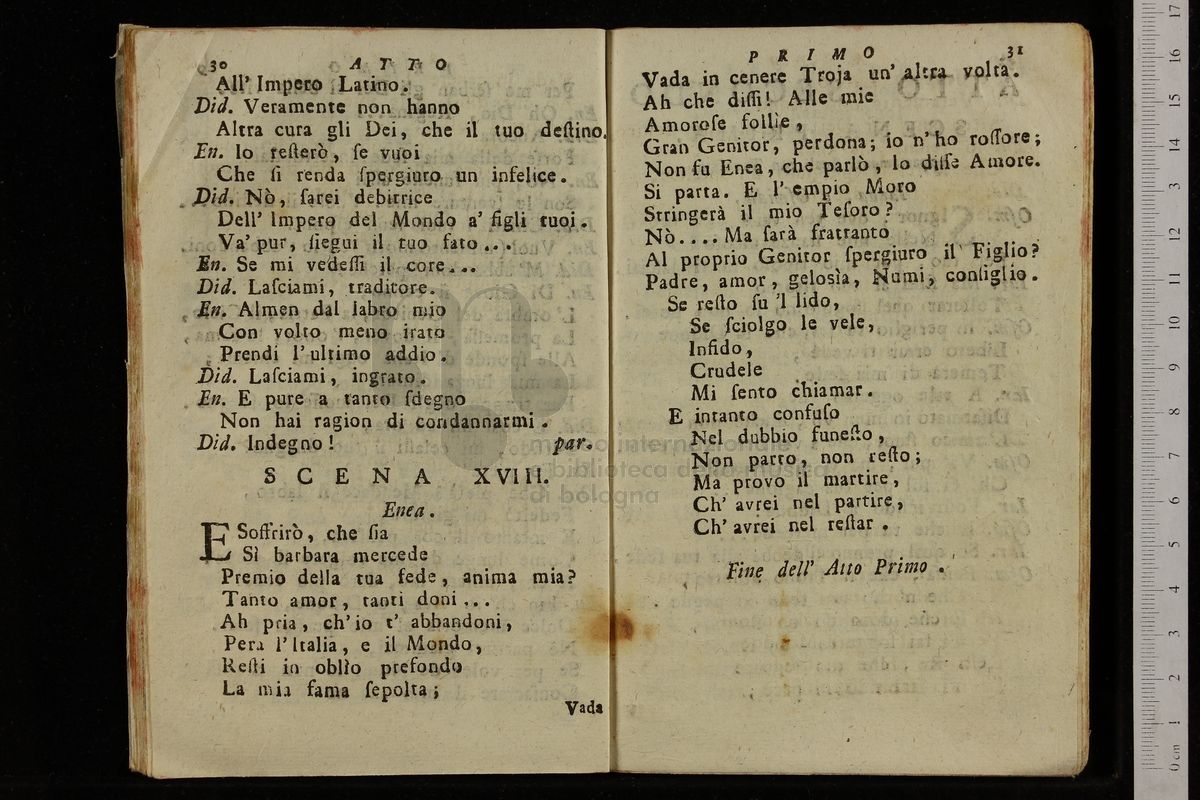 30 ATTO
All' Impero Latino.
Did. Veramente non hanno
Altra cura gli Dei, che il tuo deſtino.
En. Io reſterò, ſe vuoi
Che ſi renda ſpergiuro un infelice.
Did. Nò, ſarei debitrice
Dell' Impero del Mondo a' figli tuoi.
Va' pur, ſiegui il tuo fato...
En. Se mi vedeſſi il core...
Did. Laſciami, traditore.
En. Almen dal labro mio
Con volto meno irato
Prendi l' ultimo addio.
Did. Laſciami, ingrato.
En. E pure a tanto ſdegno
Non hai ragion di condannarmi.
Did. Indegno! par.
SCENA XVIII.
Enea.
E Soffrirò, che ſia
Sì barbara mercede
Premio della tua fede, anima mia?
Tanto amor, tanti doni...
Ah pria, ch' io t' abbandoni,
Pera l' Italia, e il Mondo,
Reſti in oblìo profondo
La mia fama ſepolta;
Vada
PRIMO 31
Vada in cenere Troja un' altra volta.
Ah che diſſi! Alle mie
Amoroſe follìe,
Gran Genitor, perdona; io n' ho roſſore;
Non fu Enea, che parlò, lo diſſe Amore.
Si parta. E l' empio Moro
Stringerà il mio Teſoro?
Nò.... Ma ſarà frattanto
Al proprio Genitor ſpergiuro il Figlio?
Padre, amor, gelosìa, Numi, conſiglio.
Se reſto ſu 'l lido,
Se ſciolgo le vele,
Infido,
Crudele
Mi ſento chiamar.
E intanto confuſo
Nel dubbio funeſto,
Non parto, non reſto;
Ma provo il martire,
Ch' avrei nel partire,
Ch' avrei nel reſtar.
Fine dell' Atto Primo.
museo internazionale
e biblioteca della musica
di bologna
0 cm 1 2 3 4 5 6 7 8 9 10 11 12 13 14 15 16 17